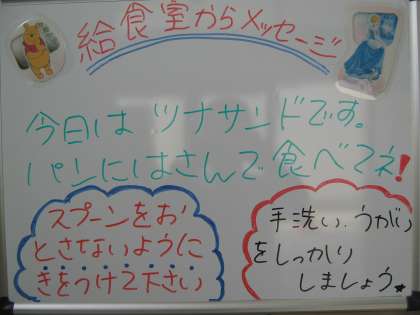 給食室からメッセージ
今日は ツナサンドです。
パンにはさんで食べてネ!
スプーンをお
とさないように
きをつけて下さい
手洗い、うがい
をしっかり
しましょう。